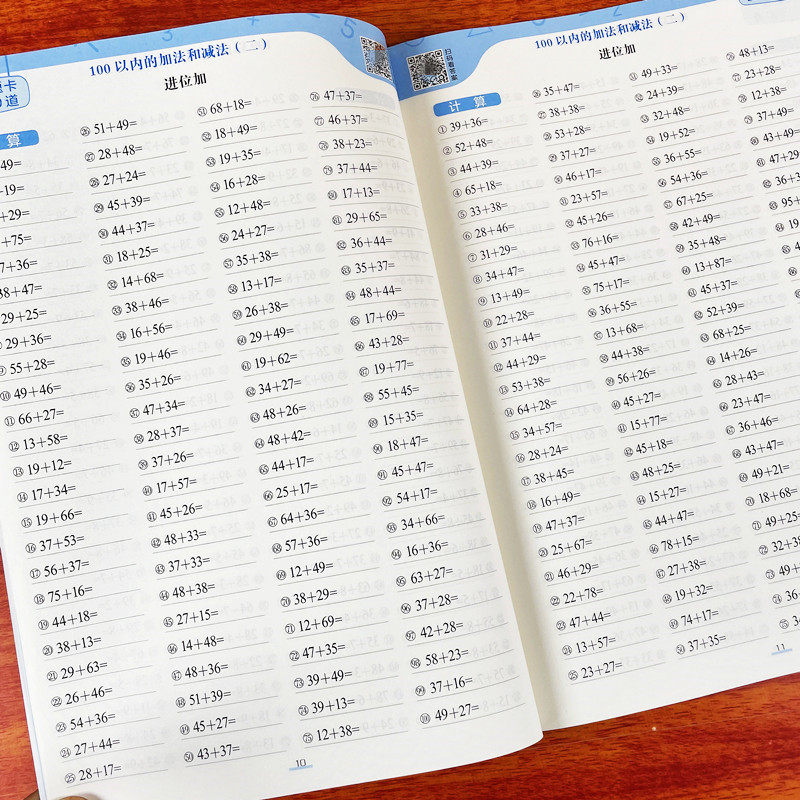 100以内的加法和减法（二）
进位加
算
㉖ 51+49=
㉗ 28+48=
㉘ 27+24=
㉙ 45+39=
㉚ 44+37=
㉛ 18+25=
㉜ 14+68=
㉝ 38+46=
㉞ 16+56=
㉟ 19+46=
㊱ 35+26=
㊲ 47+34=
㊳ 28+37=
㊴ 37+26=
㊵ 17+57=
㊶ 45+26=
㊷ 48+33=
㊸ 37+33=
㊹ 48+38=
㊺ 27+15=
㊻ 14+48=
㊼ 48+36=
㊽ 51+39=
㊾ 45+27=
㊿ 43+37=
49=
+19=
+29=
+75=
7+36=
38+47=
29+25=
29+36=
55+28=
⑩ 49+46=
⑪ 66+27=
⑫ 13+58=
⑬ 19+12=
⑭ 17+34=
⑮ 19+66=
⑯ 37+53=
⑰ 56+37=
⑱ 75+16=
⑲ 44+18=
⑳ 38+13=
㉑ 29+63=
㉒ 26+46=
㉓ 54+36=
㉔ 27+44=
㉕ 28+17=
51 68+18=
52 18+49=
53 19+35=
54 16+28=
55 12+48=
56 24+27=
57 35+38=
58 13+17=
59 26+38=
60 29+49=
61 19+62=
62 34+27=
63 48+26=
64 48+42=
65 44+17=
66 25+17=
67 64+36=
68 57+36=
69 12+49=
70 38+29=
71 12+69=
72 47+35=
73 39+49=
74 39+13=
75 12+38=
76 47+37=
77 46+37=
78 38+23=
79 37+44=
80 17+13=
81 29+65=
82 36+44=
83 35+37=
84 48+44=
85 17+69=
86 43+28=
87 19+77=
88 55+45=
89 15+35=
90 18+47=
91 45+47=
92 54+17=
93 34+66=
94 16+36=
95 63+27=
96 37+28=
97 42+28=
98 58+23=
99 37+16=
100 49+27=
10
扫码看答案
100以内的加法和减法（二）
进位加
计算
① 39+36=
② 52+48=
③ 44+39=
④ 65+18=
⑤ 33+38=
⑥ 28+46=
⑦ 31+29=
⑧ 34+47=
⑨ 13+49=
⑩ 22+28=
⑪ 37+44=
⑫ 44+29=
⑬ 53+38=
⑭ 64+28=
⑮ 34+57=
⑯ 28+24=
⑰ 38+45=
⑱ 16+49=
⑲ 47+37=
⑳ 25+67=
㉑ 46+29=
㉒ 22+78=
㉓ 47+44=
㉔ 13+57=
㉕ 23+27=
㉖ 35+47=
㉗ 38+38=
㉘ 53+28=
㉙ 37+27=
㉚ 46+17=
㉛ 23+57=
㉜ 45+26=
㉝ 76+16=
㉞ 45+47=
㉟ 75+17=
㊱ 36+55=
㊲ 13+68=
㊳ 44+38=
㊴ 56+26=
㊵ 45+27=
㊶ 15+77=
㊷ 45+18=
㊸ 48+25=
㊹ 15+27=
㊺ 44+47=
㊻ 78+15=
㊼ 27+38=
㊽ 19+32=
㊾ 74+17=
㊿ 37+35=
51 49+33=
52 24+39=
53 32+48=
54 19+52=
55 36+55=
56 54+36=
57 67+25=
58 42+49=
59 35+48=
60 13+87=
61 45+37=
62 52+39=
63 68+25=
64 14+26=
65 28+43=
66 23+47=
67 36+46=
68 43+47=
69 49+21=
70 18+68=
71 49+25=
72 32+38
73 49+
74 36+
75 3
76 48+13=
77 23+28=
78 12+38=
79 37+49
80 43+49
81 47+29
82 36+3
83 95+
84 19